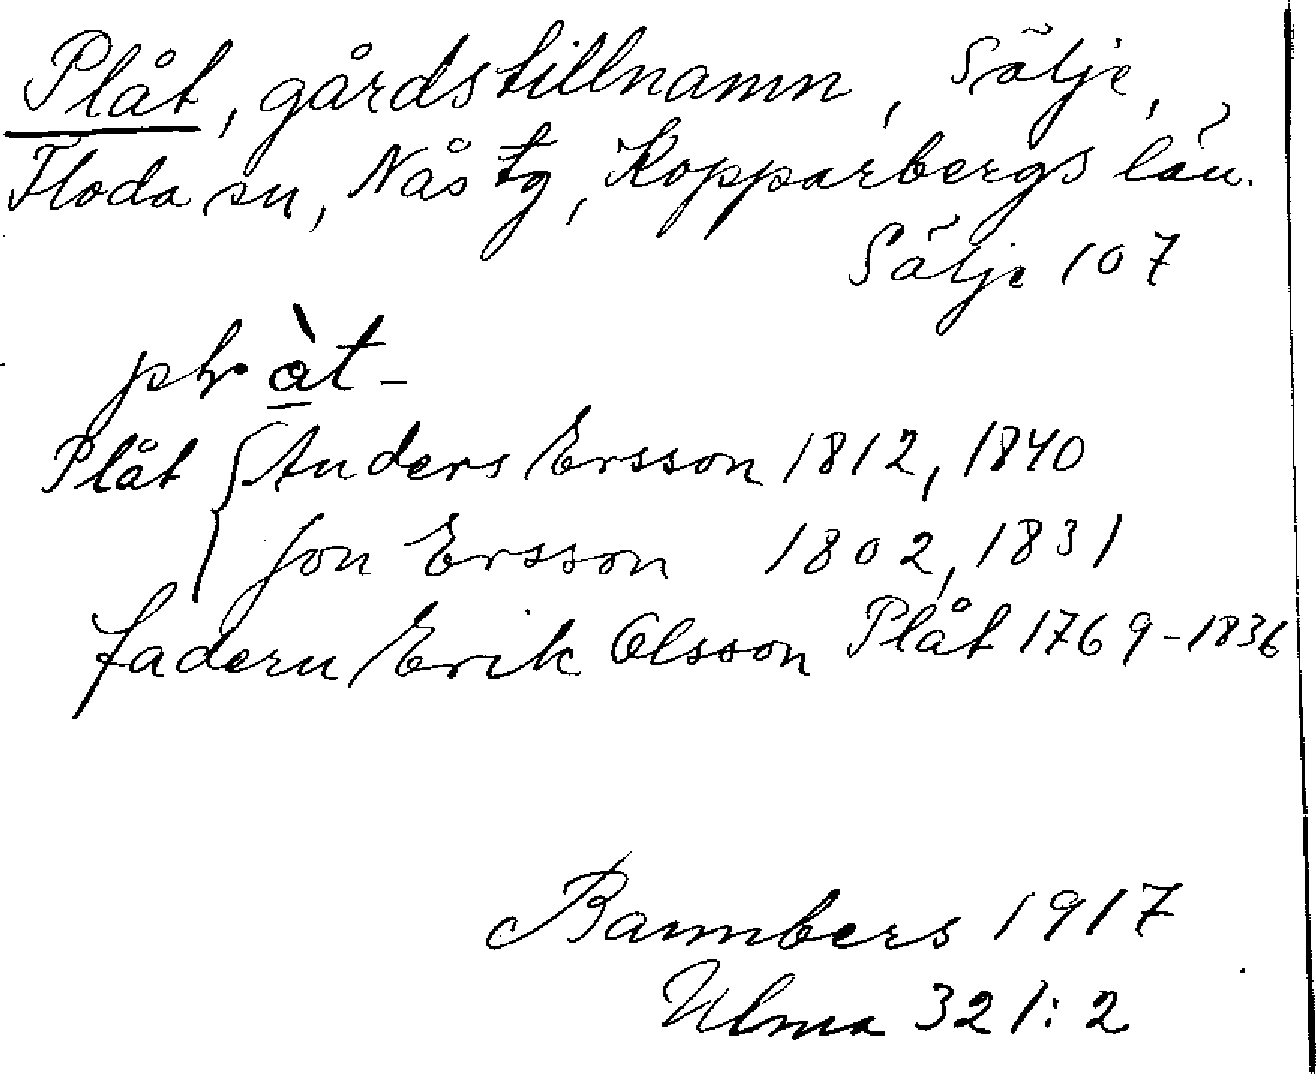 Plåt, gårdstillnamn, Sälje,
Floda sn, Nås tg, Kopparbergs län.
Sälje 107
plr àt-
Plåt { Anders Ersson 1812, 1840
Jon Ersson 1802, 1831
fadern Erik Olsson Plåt 1769-1836
Bannbers 1917
Ulma 321:2